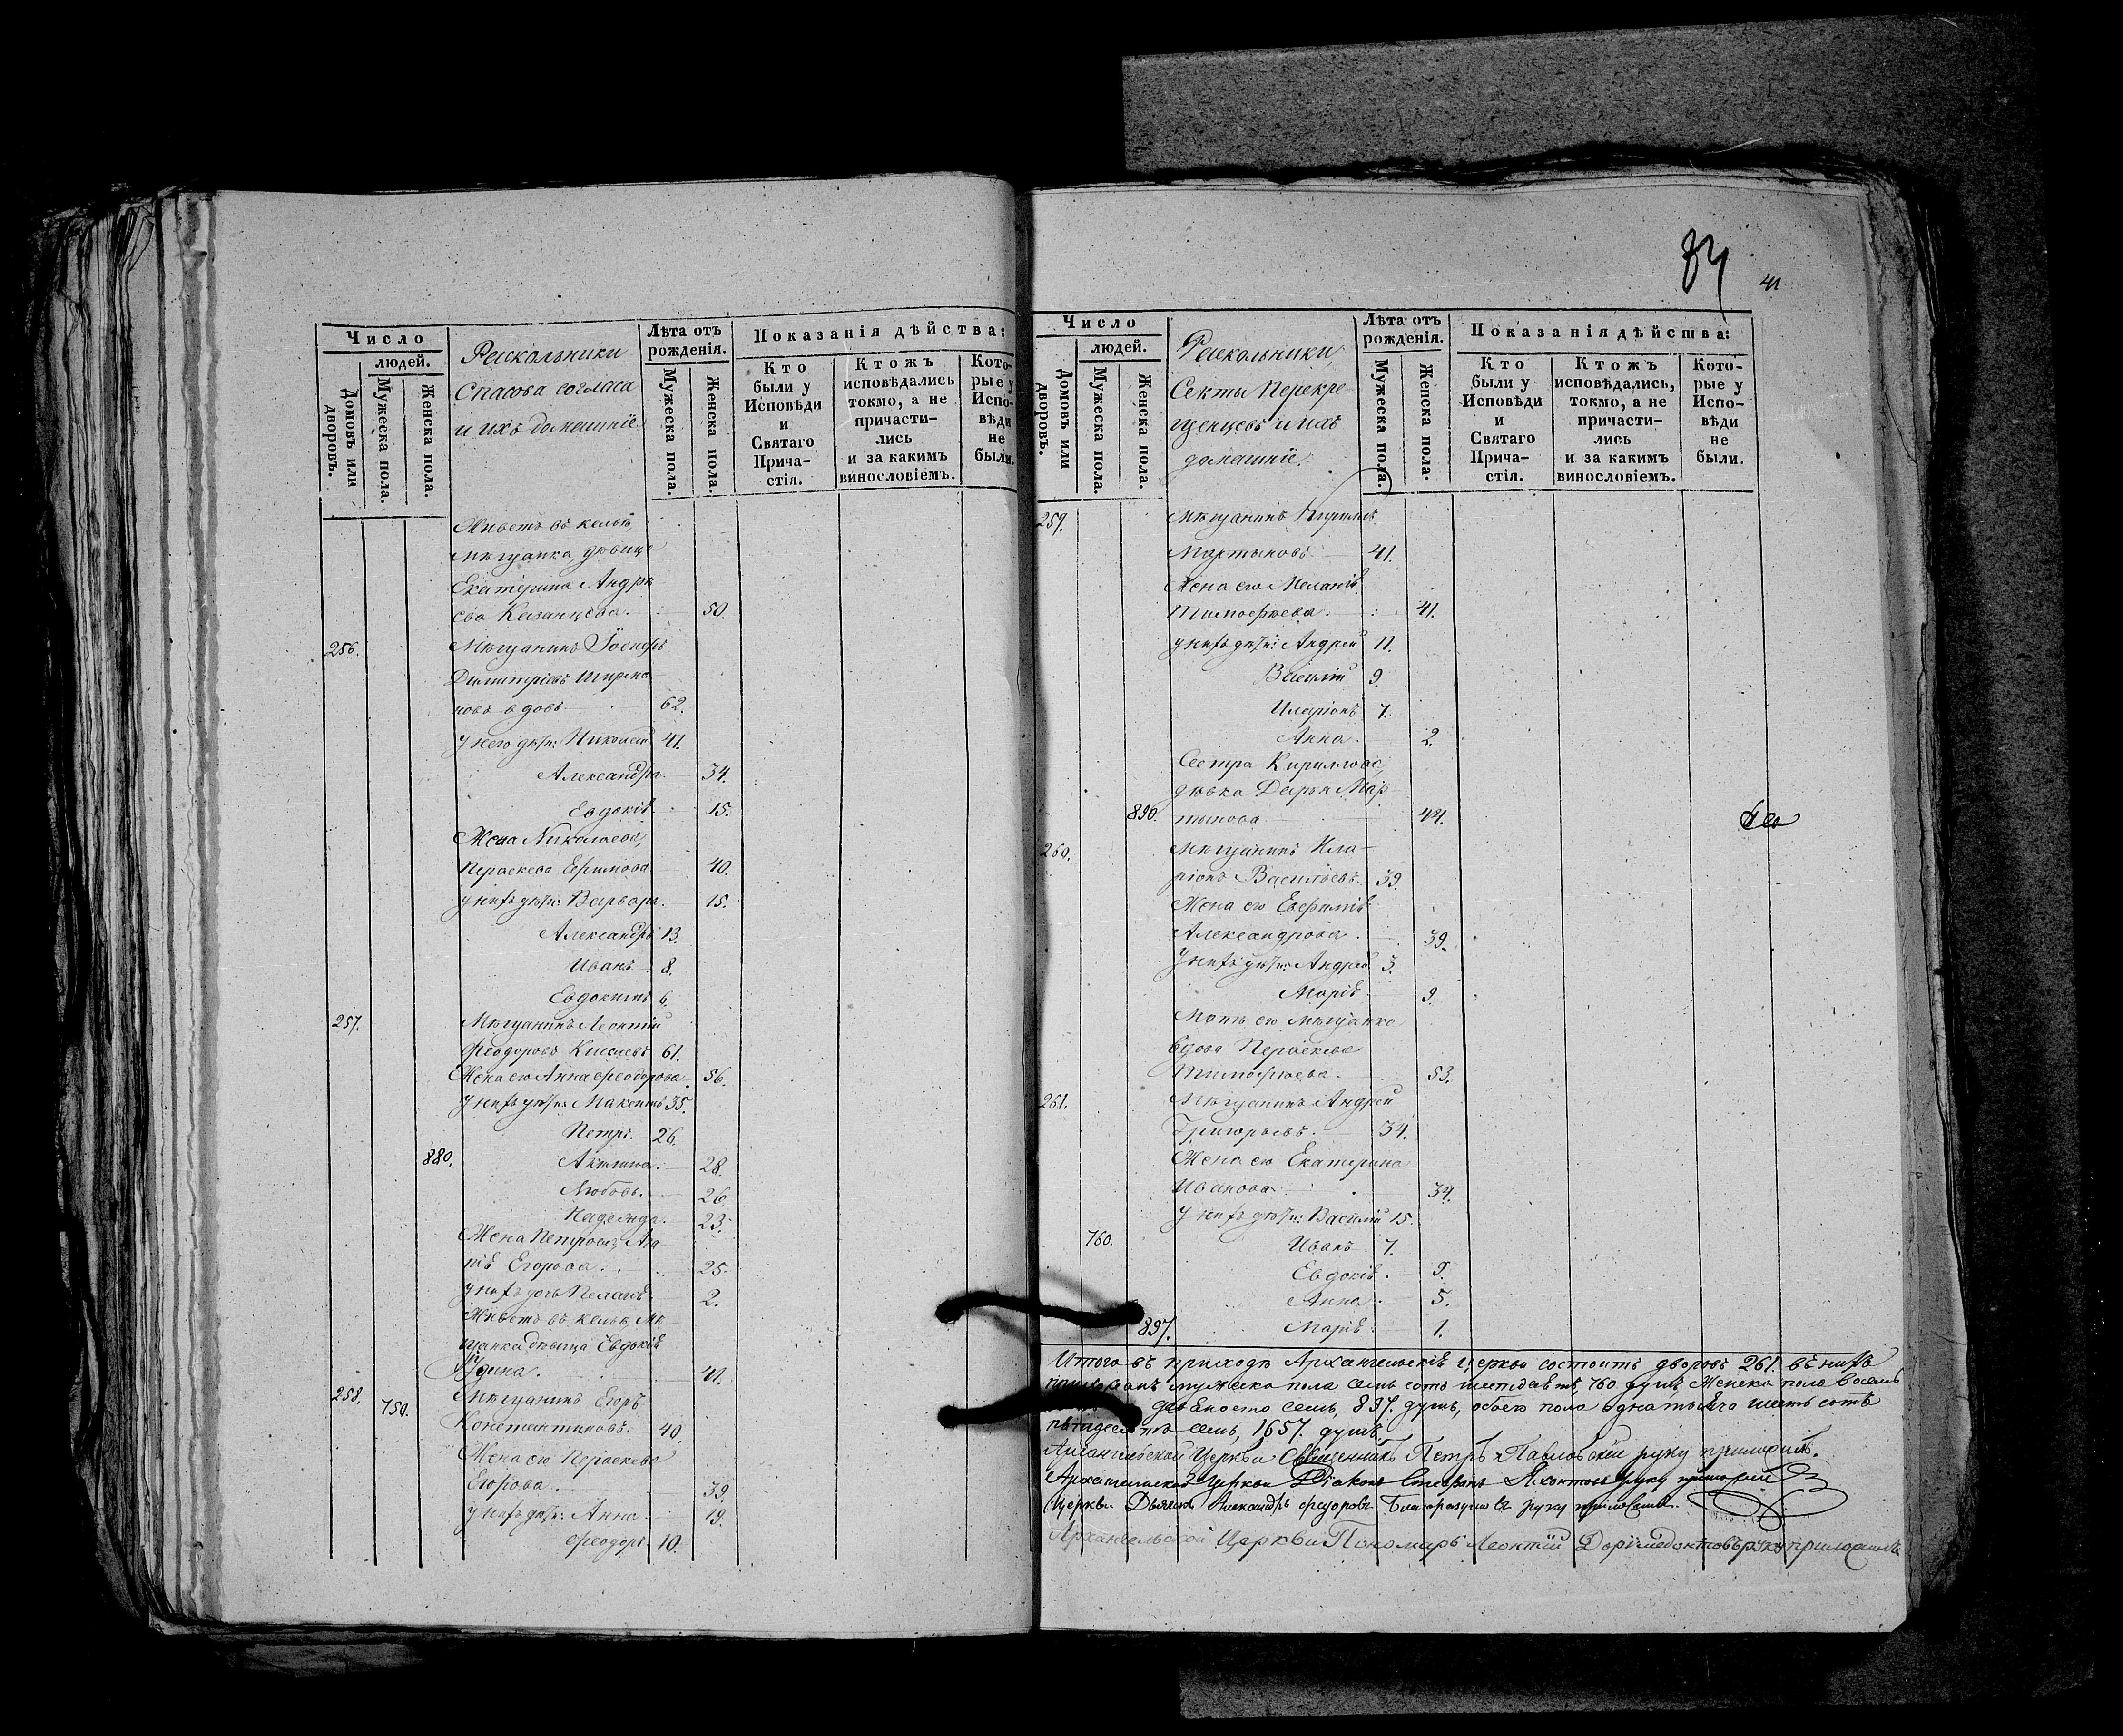 Число
людей.
Домовъ или дворовъ.
Мужеска пола.
Женска пола.
Раскольники
Спасова согласа
и ихъ домашніе
Лѣта отъ рожденія.
Мужеска пола.
Женска пола.
Показанія дѣйства:
Кто были у Исповѣди и Святаго Прича-стія.
Ктожъ исповѣдались токмо, а не причасти-лись и за какимъ винословіемъ.
Кото-рые у Испо-вѣди не были.
Живетъ въ кельѣ
мѣщанка дѣвица
Екатерина Андрѣ
ева Казанцева. 50.
256. Мѣщанинъ Іосифъ
Димитріевъ
новъ вдовъ 62.
У него дѣти: Николай 41.
Александра 34.
Евдокія 15.
Жена Николаева,
Параскева Ефимова 40.
У нихъ дѣти: Варвара. 15.
Александръ 13.
Иванъ 8.
Евдокимъ 6.
257. Мѣщанинъ Леонтій
Феодоровъ Киселевъ 61.
Жена его Анна Феодорова. 56.
У нихъ дѣти: Максимъ 35.
Петръ. 26.
880. Акилина. 28.
Любовь. 26.
Надежда. 23.
Жена Петрова, Ага
пія Егорова. 25.
У нихъ дочь Пелагія 2.
Живетъ въ кельѣ, мѣ-
щанка дѣвица Евдокія
41.
258. 750. Мѣщанинъ Егоръ
Константиновъ. 40.
Жена его Параскева
Егорова. 39.
У нихъ дѣти: Анна. 19.
Феодоръ. 10.
84
41
Число
людей.
Домовъ или дворовъ.
Мужеска пола.
Женска пола.
Раскольники,
Секты Перекре-
щенцевъ и ихъ
домашніе.
Лѣта отъ рожденія.
Мужеска пола.
Женска пола.
Показанія дѣйства:
Кто были у Исповѣди и Святаго Прича-стія.
Ктожъ исповѣдались, токмо, а не причасти-лись и за какимъ винословіемъ.
Кото-рые у Испо-вѣди не были.
259. Мѣщанинъ Кириллъ
Мартыновъ. 41.
Жена его Меланія
Тимофѣева. 41.
У нихъ дѣти: Андрей 11.
Василій 9.
Иларіонъ 7.
Анна. 2.
Сестра Кириллова,
дѣвка Дарья Мар
890. тынова 44.
260. Мѣщанинъ Ила-
ріонъ Васильевъ 39.
Жена его Евфимія
Александрова. 39.
У нихъ дѣти: Андрей 3.
Марія 9.
Мать его мѣщанка
вдова Параскева
Тимофѣева. 53.
261. Мѣщанинъ Андрей
Григорьевъ. 34.
Жена его Екатерина
Иванова 34.
У нихъ дѣти: Василій 15.
760. Иванъ 7.
Евдокія. 9.
Анна. 5.
897. Марія 1.
Итого въ приходѣ Архангельскія церкви состоитъ дворовъ 261. въ нихъ
прихожанъ мужеска пола семь сотъ шестьдесятъ, 760 душъ, Женска пола восемь
девяносто семь, 897. душъ, обоего пола одна тысяча шесть сотъ
пятьдесятъ семь, 1657. душъ.
Архангельской Церкви Священникъ Петръ Павловскій руку приложилъ.
Архангельской Церкви Діаконъ Стефанъ руку приложилъ
Церкви Дьячекъ Александръ Феодоровъ Благоразумовъ руку приложилъ.
Архангельской Церкви Пономарь Леонтій Доримедонтовъ руку приложилъ